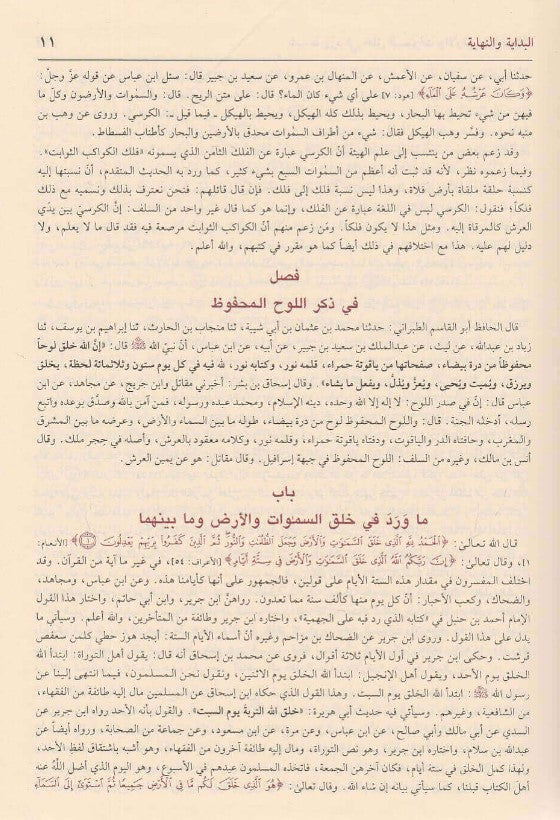 البداية والنهاية
١١
حدثنا أبي، عن سفيان، عن الأعمش، عن المنهال بن عمرو، عن سعيد بن جبير قال: سئل ابن عباس عن قوله عزّ وجلّ:
﴿وَكَانَ عَرْشُهُ عَلَى الْمَاءِ﴾ [هود: ٧] على أي شيء كان الماء؟ قال: على متن الريح. قال: والسمٰوات والأرضون وكلّ ما
فيهن من شيء تحيط بها البحار، ويحيط بذلك كله الهيكل، ويحيط بالهيكل ـ فيما قيل ـ: الكرسي. وروى عن وهب بن
منبه نحوه. وفسَّر وهب الهيكل فقال: شيء من أطراف السمٰوات محدق بالأرضين والبحار كأطناب الفسطاط.
وقد زعم بعض من ينتسب إلى علم الهيئة أنّ الكرسي عبارة عن الفلك الثامن الذي يسمونه «فلك الكواكب الثوابت».
وفيما زعموه نظر، لأنه قد ثبت أنه أعظم من السمٰوات السبع بشيء كثير، كما ورد به الحديث المتقدم، أنّ نسبتها إليه
كنسبة حلقة ملقاة بأرض فلاة، وهذا ليس نسبة فلك إلى فلك. فإن قال قائلهم: فنحن نعترف بذلك ونسميه مع ذلك
فلكاً؛ فنقول: الكرسي ليس في اللغة عبارة عن الفلك، وإنما هو كما قال غير واحد من السلف: إنّ الكرسيّ بين يدَي
العرش كالمرقاة إليه. ومثل هذا لا يكون فلكاً. ومَن زعم منهم أنّ الكواكب الثوابت مرصعة فيه فقد قال ما لا يعلم، ولا
دليل لهم عليه. هذا مع اختلافهم في ذلك أيضاً كما هو مقرر في كتبهم، والله أعلم.
فصل
في ذكر اللوح المحفوظ
قال الحافظ أبو القاسم الطبراني: حدثنا محمد بن عثمان بن أبي شيبة، ثنا منجاب بن الحارث، ثنا إبراهيم بن يوسف، ثنا
زياد بن عبدالله، عن ليث، عن عبدالملك بن سعيد بن جبير، عن أبيه، عن ابن عباس، أنّ نبيّ الله ﷺ قال: «إنّ الله خلق لوحاً
محفوظاً من درة بيضاء، صفحاتها من ياقوتة حمراء، قلمه نور، وكتابه نور، لله فيه في كل يوم ستون وثلاثمائة لحظة، يخلق
ويرزق، ويُميت ويُحيي، ويُعزُّ ويُذِلُّ، ويفعل ما يشاء». وقال إسحاق بن بشر: أخبرني مقاتل وابن جريج، عن مجاهد، عن ابن
عباس قال: إنّ في صدر اللوح: لا إله إلا الله وحده، دينه الإسلام، ومحمد عبده ورسوله، فمن آمن بالله وصدّق بوعده واتبع
رسله، أدخله الجنة. قال: واللوح المحفوظ لوح من درة بيضاء، طوله ما بين السماء والأرض، وعرضه ما بين المشرق
والمغرب، وحافتاه الدر والياقوت، ودفتاه ياقوتة حمراء، وقلمه نور، وكلامه معقود بالعرش، وأصله في حِجر ملك. وقال
أنس بن مالك، وغيره من السلف: اللوح المحفوظ في جبهة إسرافيل. وقال مقاتل: هو عن يمين العرش.
باب
ما وَرَدَ في خلق السمٰوات والأرض وما بينهما
قال الله تعالىٰ: ﴿الْحَمْدُ لِلَّهِ الَّذِي خَلَقَ السَّمَٰوَٰتِ وَالْأَرْضَ وَجَعَلَ الظُّلُمَٰتِ وَالنُّورَ ثُمَّ الَّذِينَ كَفَرُوا بِرَبِّهِمْ يَعْدِلُونَ ۝١﴾ [الأنعام:
١]، وقال تعالىٰ: ﴿إِنَّ رَبَّكُمُ اللَّهُ الَّذِي خَلَقَ السَّمَٰوَٰتِ وَالْأَرْضَ فِي سِتَّةِ أَيَّامٍ﴾ [الأعراف: ٥٤]، في غير ما آية من القرآن. وقد
اختلف المفسرون في مقدار هذه الستة الأيام على قولين، فالجمهور على أنها كأيامنا هذه. وعن ابن عباس، ومجاهد،
والضحاك، وكعب الأحبار: أنّ كل يوم منها كألف سنة مما تعدون. رواهنّ ابن جرير، وابن أبي حاتم، واختار هذا القول
الإمام أحمد بن حنبل في «كتابه الذي رد فيه على الجهمية»، واختاره ابن جرير وطائفة من المتأخرين، والله أعلم. وسيأتي ما
يدل على هذا القول. وروى ابن جرير عن الضحاك بن مزاحم وغيره أنّ أسماء الأيام الستة: أبجد هوز حطي كلمن سعفص
قرشت. وحكى ابن جرير في أول الأيام ثلاثة أقوال، فروى عن محمد بن إسحاق أنه قال: يقول أهل التوراة: ابتدأ الله
الخلق يوم الأحد، ويقول أهل الإنجيل: ابتدأ الله الخلق يوم الاثنين، ونقول نحن المسلمون، فيما انتهى إلينا عن
رسول الله ﷺ: ابتدأ الله الخلق يوم السبت. وهذا القول الذي حكاه ابن إسحاق عن المسلمين مال إليه طائفة من الفقهاء،
من الشافعية، وغيرهم. وسيأتي فيه حديث أبي هريرة: «خلق الله التربة يوم السبت». والقول بأنه الأحد رواه ابن جرير عن
السدي عن أبي مالك وأبي صالح، عن ابن عباس، وعن مرة، عن ابن مسعود، وعن جماعة من الصحابة، ورواه أيضاً عن
عبدالله بن سلام، واختاره ابن جرير، وهو نص التوراة، ومال إليه طائفة آخرون من الفقهاء، وهو أشبه باشتقاق لفظ الأحد،
ولهذا كمل الخلق في ستة أيام، فكان آخرهن الجمعة، فاتخذه المسلمون عيدهم في الأسبوع، وهو اليوم الذي أضل اللَّهُ عنه
أهل الكتاب قبلنا، كما سيأتي بيانه إن شاء الله. وقال تعالىٰ: ﴿هُوَ الَّذِي خَلَقَ لَكُم مَّا فِي الْأَرْضِ جَمِيعًا ثُمَّ اسْتَوَىٰ إِلَى السَّمَاءِ